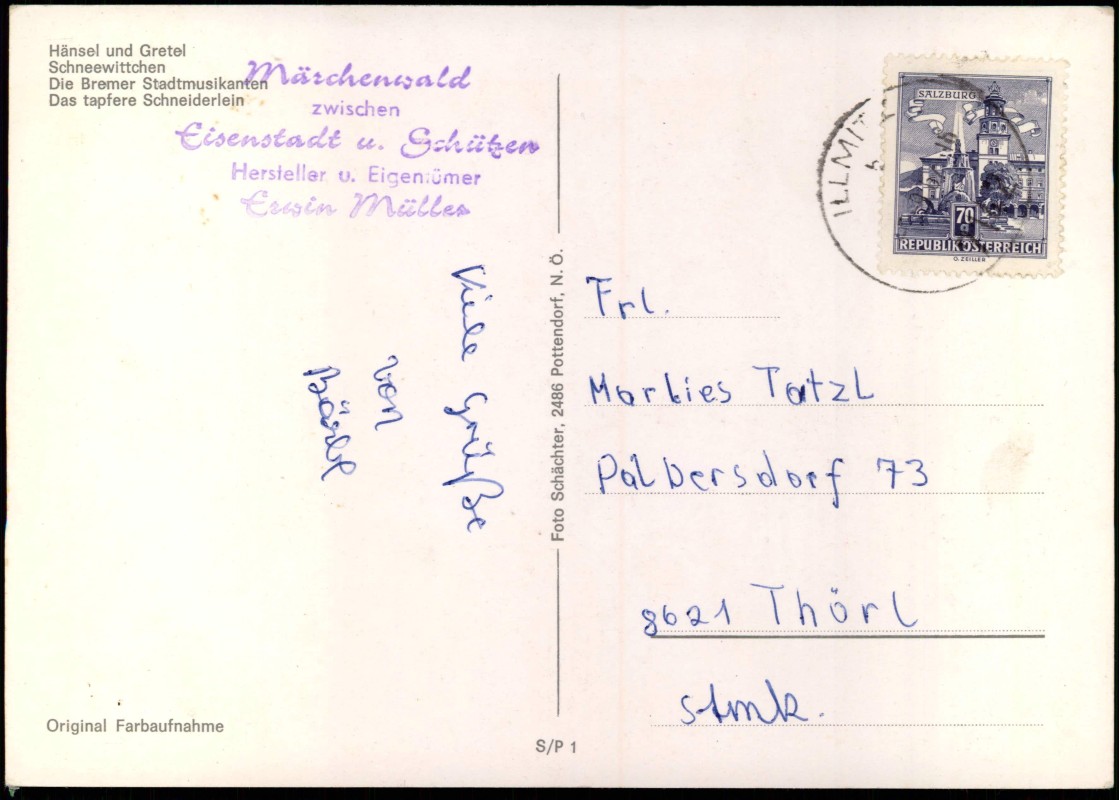 Hänsel und Gretel
Schneewittchen
Die Bremer Stadtmusikanten
Das tapfere Schneiderlein
Märchenwald
zwischen
Eisenstadt u. Schützen
Hersteller u. Eigentümer
Erwin Müller
Viele Grüße
von
Bärbl
Foto Schächter, 2486 Pottendorf, N. Ö.
SALZBURG
70
REPUBLIK ÖSTERREICH
O. ZEILLER
ILLMITZ
Frl.
Marlies Tatzl
Palbersdorf 73
8621 Thörl
Stmk.
Original Farbaufnahme
S/P 1